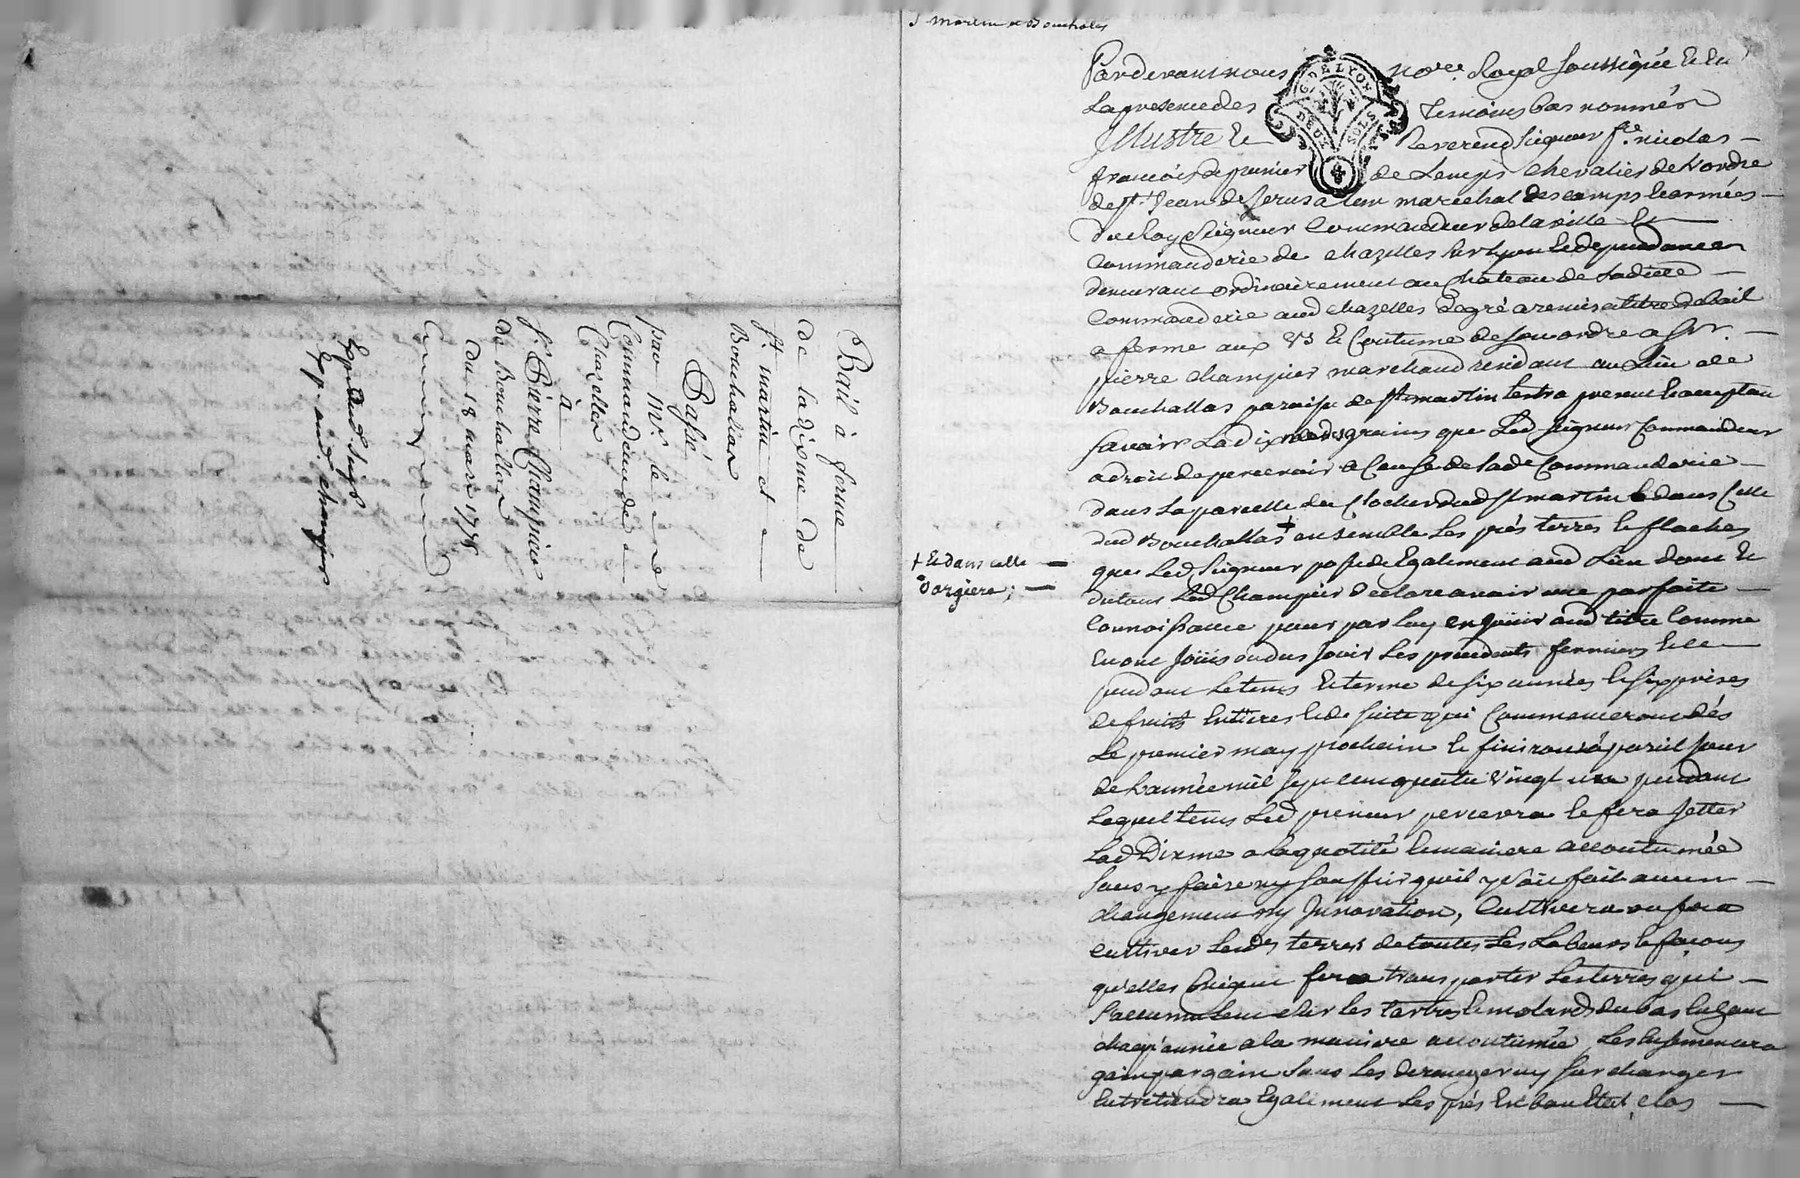 Bail à ferme
de la dixme de
St. martin et
Bouchalas
Passé
par Mr. le
Commandeur de
Chazelles
à
Sr. Pierre Champier
de Bouchallas
du 18 mars 1775
Expédié
p. aud. champier
St Martin et Bouchalas
Pardevant nous no.re Royal soussigné et en
La presence des temoins bas nommés
Illustre et Reverend Seigneur f.re nicolas
françois de prunier de Lemps chevalier de Lordre
de St. Jean de Jerusalem marechal des camps et armées
du Roy Seigneur Commandeur de la ville et
Commanderie de chazelles sur Lyon et dependances
demeurant ordinairement au Chateau de Ladite
Commanderie aud chazelles de gré a remis a titre de bail
a ferme aux us et Coutume de son ordre a Sr.
pierre champier marchand residant au Lieu de
Bouchallas paroisse de St martin Lestra prenant et acceptant
savoir La dixme des grains que Led Seigneur Commandeur
a droit de percevoir a Cause de sade Commanderie
dans La parcelle du Clocher dud St martin & dans Celle
dud Bouchallas + ensemble Les prés terres et flaches
+ Et dans celle
Dargiere;
que Led Seigneur possede Egalement aud Lieu dont et
du tout Led Champier declare avoir une parfaite
Connoissance pour par luy en jouir aud titre Comme
En ont Joüis ou dus jouir Les precedents fermiers et ce
pendant Le tems et terme de six années et six prises
de fruits Entieres et de suite qui Commenceront dès
Le premier may prochain et finiront a pareil jour
de L'année mil sept cent quatre vingt un pendant
Lequel tems Led preneur percevra et fera jetter
Lad Dixme a La quotité et maniere accoutumée
sans y faire ny souffrir qu'il y soit fait aucun
changement ny Innovation, Cultivera ou fera
cultiver Lesd.s terres de toutes Les Labeurs et façons
qu'elles Exigent fera transporter Les terres qui
s'accumulent sur les tertres et molards du bas En haut
chaq' année a la maniere accoutumée Les Ensemencera
gain par gain sans Les deranger ny surcharger
Entretiendra Egalement Les prés En bon Etat, clos